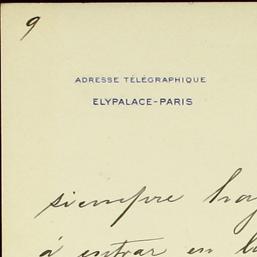 9
ADRESSE TÉLÉGRAPHIQUE
ELYPALACE-PARIS
siempre hay
á entrar en